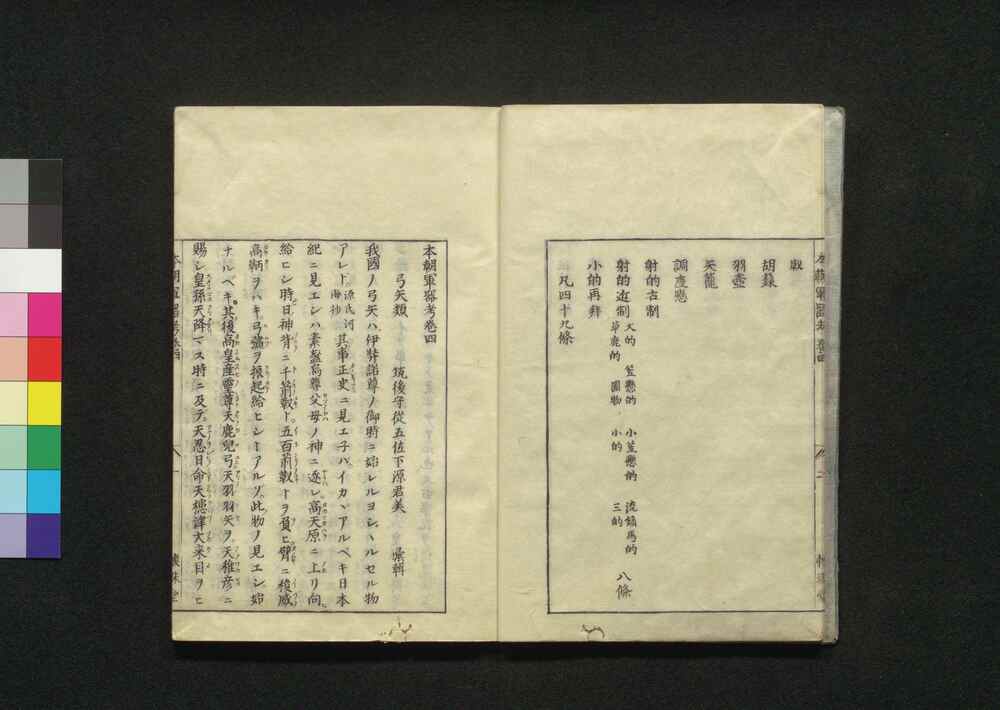 靫
胡籙
羽壺
矢籠
調度懸
射的古制
射的近制 大的 笠懸的 小笠懸的 流鏑馬的
草鹿的 圓物 小的 三的 八條
小的再拜
凡四十九條
本朝軍器考卷四
弓矢類 筑後守從五位下源君美 彙輯
我國ノ弓矢ハ伊弉諾尊ノ御時ニ始レルヨシヽルセル物
アレド 源氏河海抄 其事正史ニ見エ子バイカヾアルベキ日本
紀ニ見エシハ素盞烏尊父母ノ神ニ逐レ高天原ニ上リ向
給ヒシ時日神背ニ千箭靫ト五百箭靫トヲ負ヒ臂ニ稜威
高鞆ヲハキ弓彇ヲ振起給ヒシトアルゾ此物ノ見エシ始
ナルベキ其後高皇産靈尊天鹿兒弓天羽羽矢ヲ天稚彦ニ
賜シ皇孫天降マス時ニ及デ天忍日命天槵津大來目ヲヒ
本朝軍器考卷四